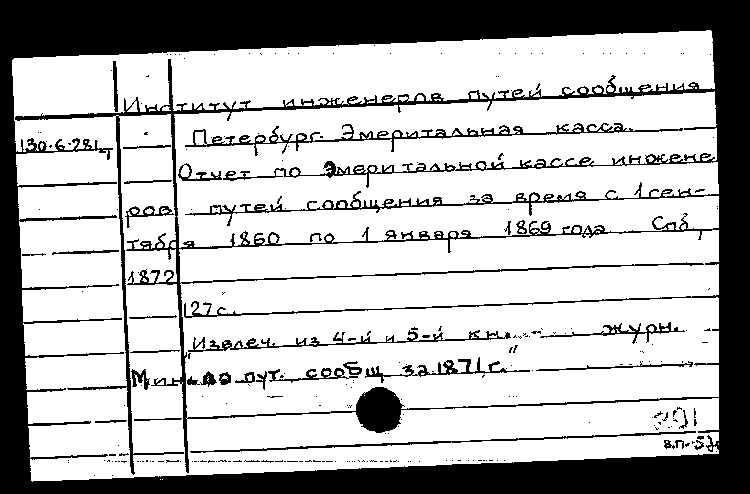 Институт инженеров путей сообщения
130-6-281
Петербург. Эмеритальная касса.
Отчет по Эмеритальной кассе инжене
ров путей сообщения за время с 1 сен-
тября 1860 по 1 января 1869 года Спб,
1872
127 с.
"Извлеч. из 4-й и 5-й кн. журн.
Мин-ва пут. сообщ за 1871 г."
в.п.-57